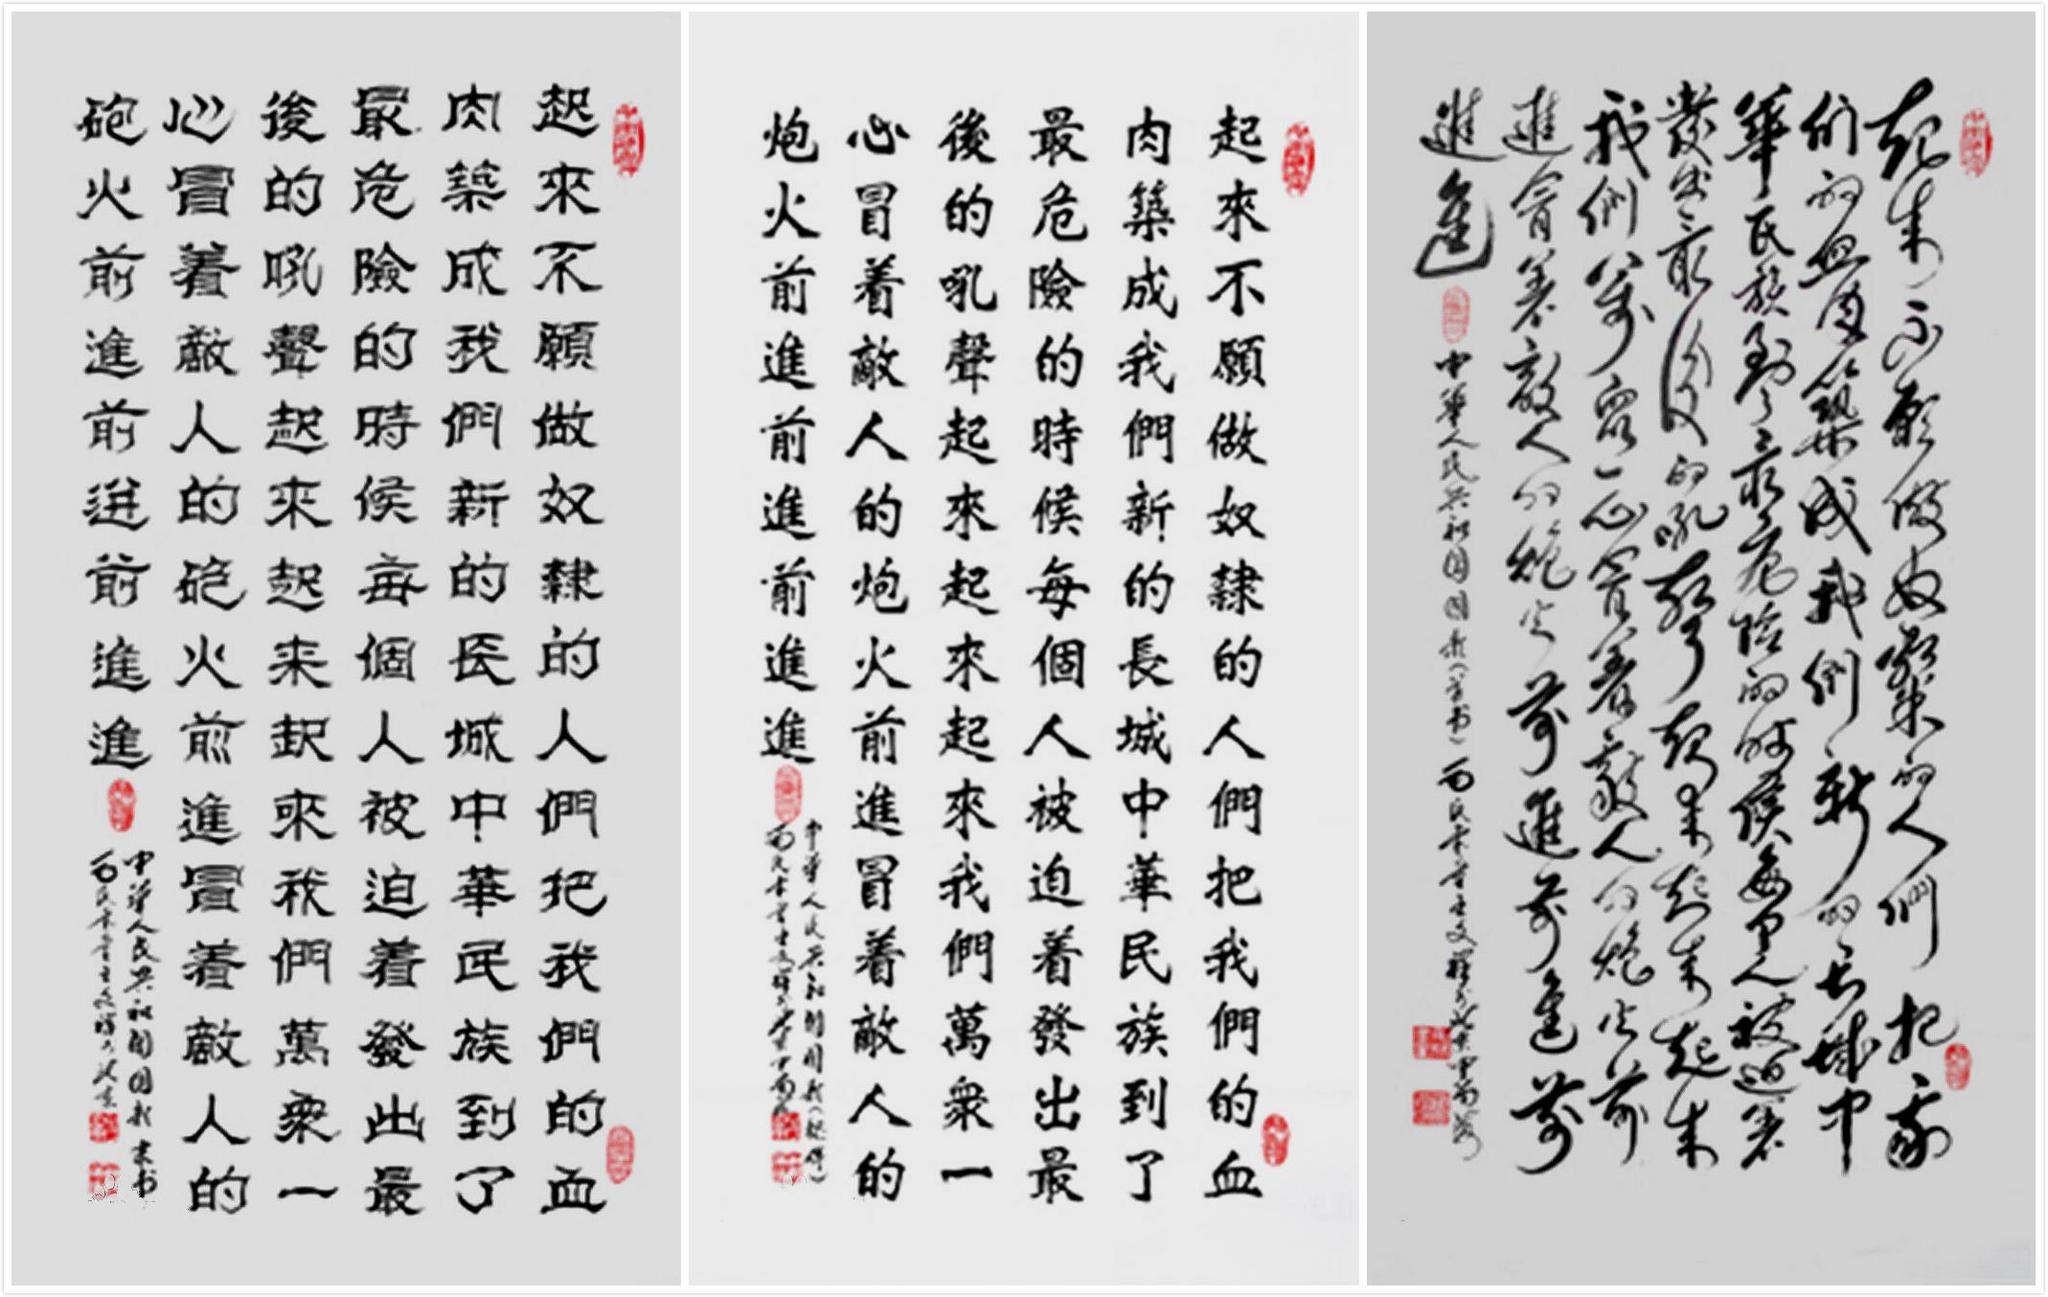 起來不願做奴隸的人們把我們的血
肉築成我們新的長城中華民族到了
最危險的時候每個人被迫着發出最
後的吼聲起來起来起來我們萬衆一
心冒着敵人的砲火前進冒着敵人的
砲火前進前進前進進
中華人民共和國國歌隶书
起來不願做奴隸的人們把我們的血
肉築成我們新的長城中華民族到了
最危險的時候每個人被迫着發出最
後的吼聲起來起來起來我們萬衆一
心冒着敵人的炮火前進冒着敵人的
炮火前進前進前進進
中華人民共和國國歌(楷體)
起来不願做奴隸的人們把我
们的血肉築成我们新的长城中
華民族到了最危险的时候每个人被迫着
發出最後的吼聲起来起来起来
我們萬众一心冒着敵人的炮火前
進冒着敵人的炮火前進前進前
進進
中華人民共和國國歌(草书)